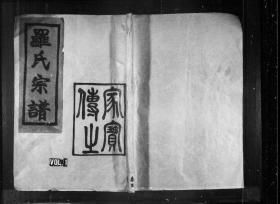 羅氏宗譜
家寶
傳之
VOL. 1